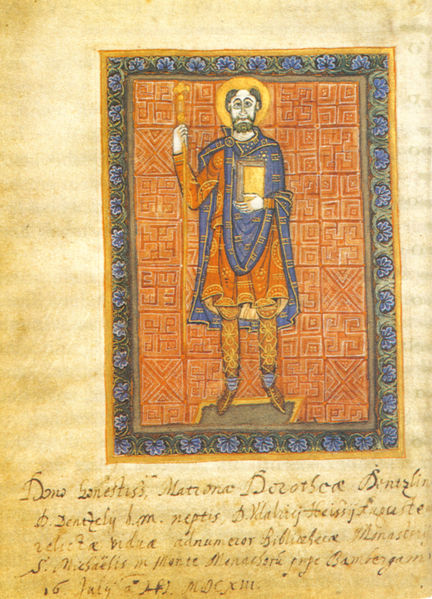 Dono honestiss. Matronæ Dorotheæ Dentzlin
D. Dentzely h.m. neptis, D. Vdalrici
relictæ viduæ adnumeror Bibliothecæ Monasterij
S. Michaëlis in Monte Monachorũ prope Bambergam
16 July aº MDCXIII.